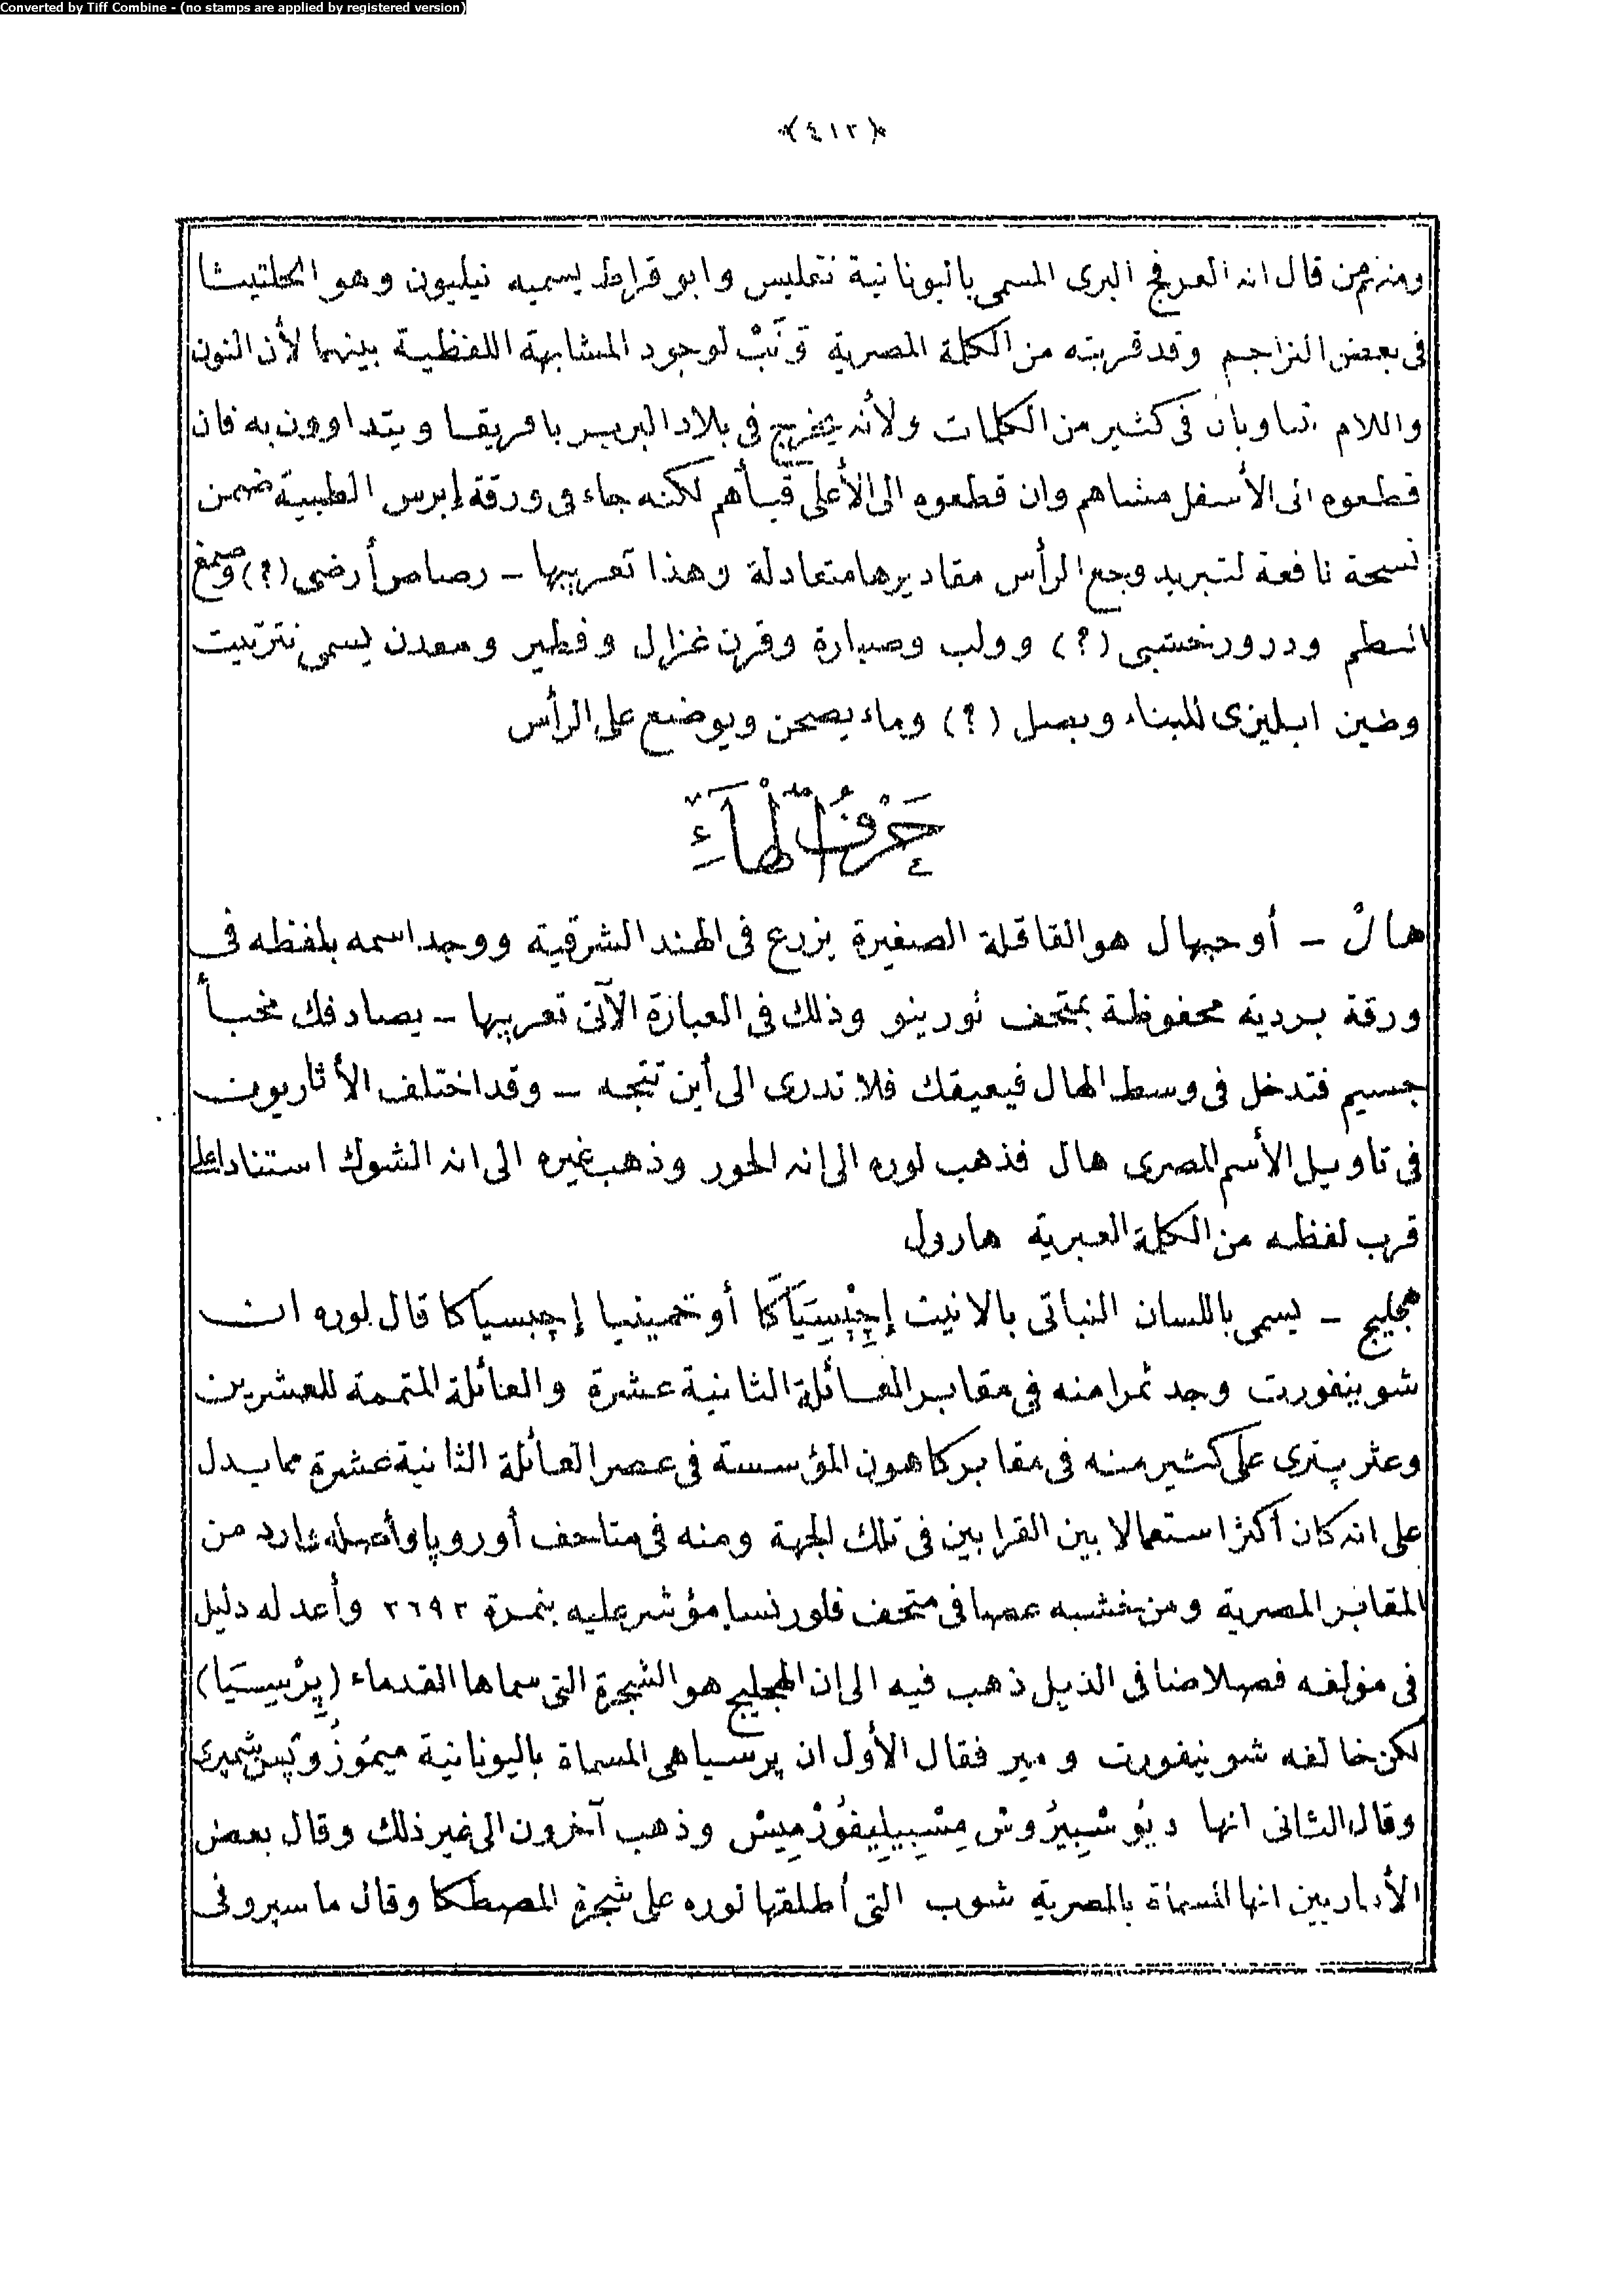 Converted by Tiff Combine - (no stamps are applied by registered version)
﴿٤١٢﴾
ومنهم من قال انه العرفج البرى المسمى باليونانية نتمليس وابو قراط يسميه نيليون وهو الحلتيثا
فى بعض التراجم وقد قربته من الكلمة المصرية تونَبْ لوجود المشابهة اللفظية بينهما لأن النون
واللام تساويان فى كثير من الكلمات ولأنه يخرج فى بلاد البربر بافريقا ويتداوون به فان
قطعوه الى الأسفل مشاهم وان قطعوه الى الأعلى قيأهم لكنه جاء فى ورقة إبرس الطبية ضمن
نسخة نافعة لتبريد وجع الرأس مقاديرها متعادلة وهذا تعريبها – رصاص أرضى (؟) وصمغ
السطم ودرور خشبى (؟) وولب وصبارة وقرن غزال وفطير ومعدن يسمى نترتيت
وطين ابليزى للبناء وبصل (؟) وماء يصحن ويوضع على الرأس
حَرْفُ الْهَآءِ
هالْ – أو حبهال هو القاقلة الصغيرة يزرع فى الهند الشرقية ووجد اسمه بلفظه فى
ورقة بردية محفوظة بمتحف تورينو وذلك فى العبارة الآتى تعريبها – يصادفك مخبأ
جسيم فتدخل فى وسط الهال فيعيقك فلا تدرى الى أين تتجه – وقد اختلف الأثاريون
فى تاويل الأسم المصرى هال فذهب لوره الى انه الحور وذهب غيره الى انه الشوك استنادا على
قرب لفظه من الكلمة العبرية هارول
هجليج – يسمى باللسان النباتى بالانيت إجِبْسِيَاكَا أو خمينيا إجبسياكا قال لوره ان
شوينفورت وجد ثمرا منه فى مقابر العائلة الثانية عشرة والعائلة المتممة للعشرين
وعثر پترى على كثير منه فى مقابر كاهون المؤسسة فى عصر العائلة الثانية عشرة مما يدل
على انه كان أكثر استعمالا بين القرابين فى تلك الجهة ومنه فى متاحف أوروپا وأصله وارد من
المقابر المصرية ومن خشبه عصا فى متحف فلورنسا مؤشر عليه بنمرة ٢٦٩٢ وأعد له دليل
فى مؤلفه فصلا ضافى الذيل ذهب فيه الى ان الهجليج هو الشجرة التى سماها القدماء (پِرْسِيَا)
لكن خالفه شونيفورت ومير فقال الأول ان پرسيا هى المسماة باليونانية ميموُزُوپس شمپرى
وقال الثانى انها ديُوسْپِيرُوسْ مِسْپِيلِيفُوزْمِيسْ وذهب آخرون الى غير ذلك وقال بعض
الأثاريين انها المسماة بالمصرية شوب التى أطلقها لوره على شجرة المصطكا وقال ماسپرو فى